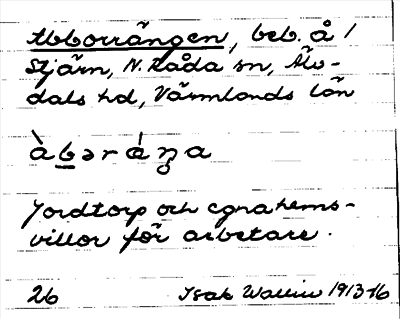 Abborrängen, beb. å /
Stjärn, N. Råda sn, Älv-
dals hd, Värmlands län
àbəráŋa
Jordtorp och egnahems-
villor för arbetare.
26 Isak Wallin 1913-16